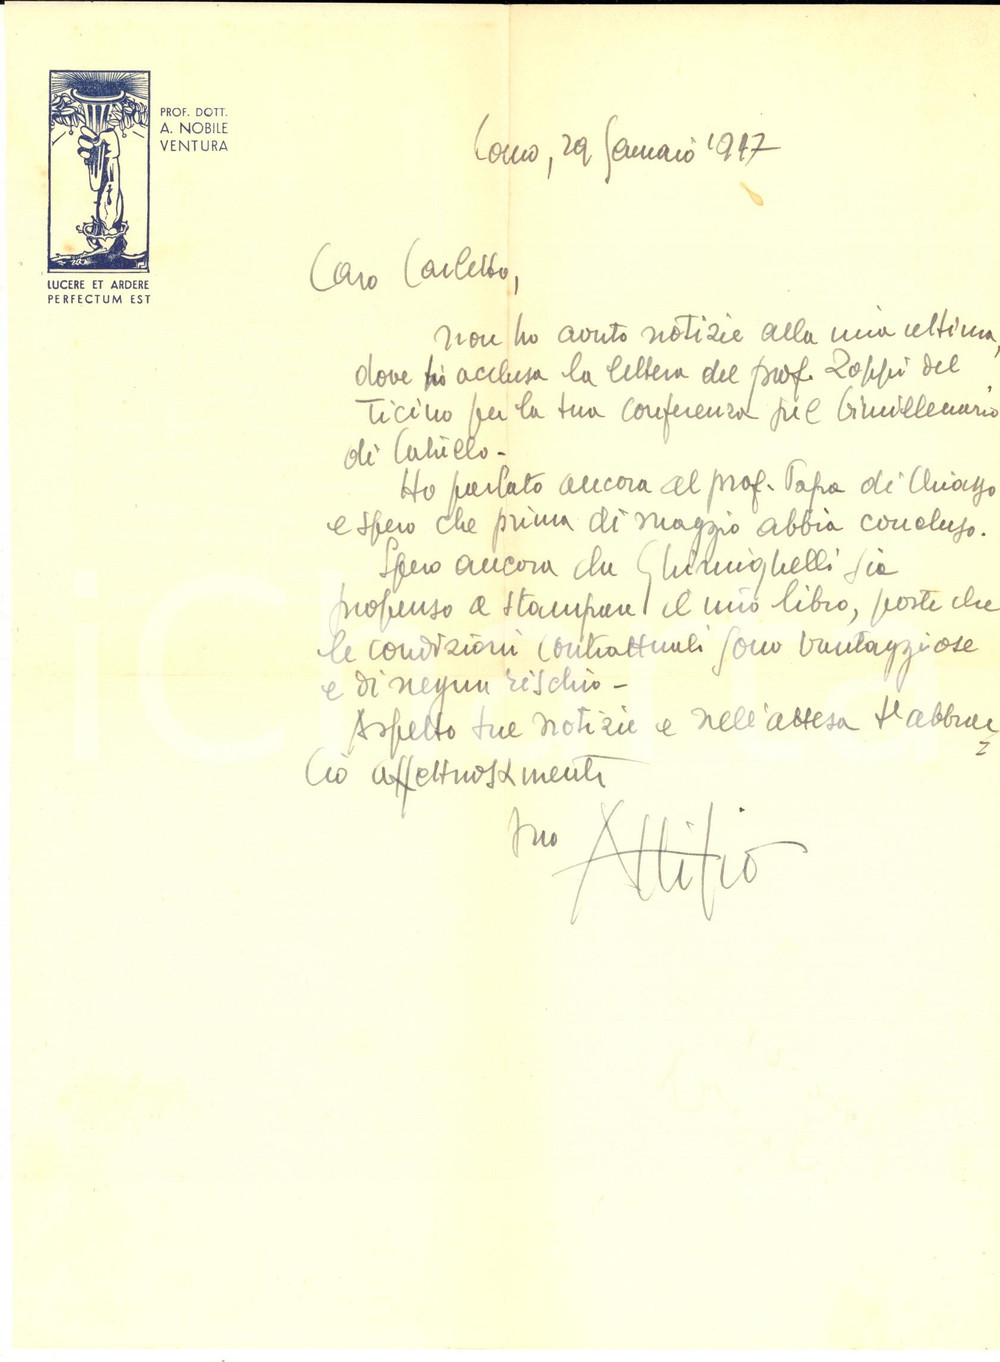 PROF. DOTT.
A. NOBILE
VENTURA
LUCERE ET ARDERE
PERFECTUM EST
Como, 29 Gennaio 1947
Caro Carletto,
non ho avuto notizie alla mia ultima,
dove ho acclusa la lettera del prof. Zoppi del
Ticino per la tua conferenza pel bimillenario
di Catullo -
Ho parlato ancora al prof. Papa di Chiasso
e spero che prima di maggio abbia concluso.
Spero ancora che Ghirighelli sia
propenso a stampare il mio libro, poste che
le condizioni contrattuali sono vantaggiose
e di negun rischio -
Aspetto tue notizie e nell'attesa t'abbrac
cio affettuosamente
tuo Attilio